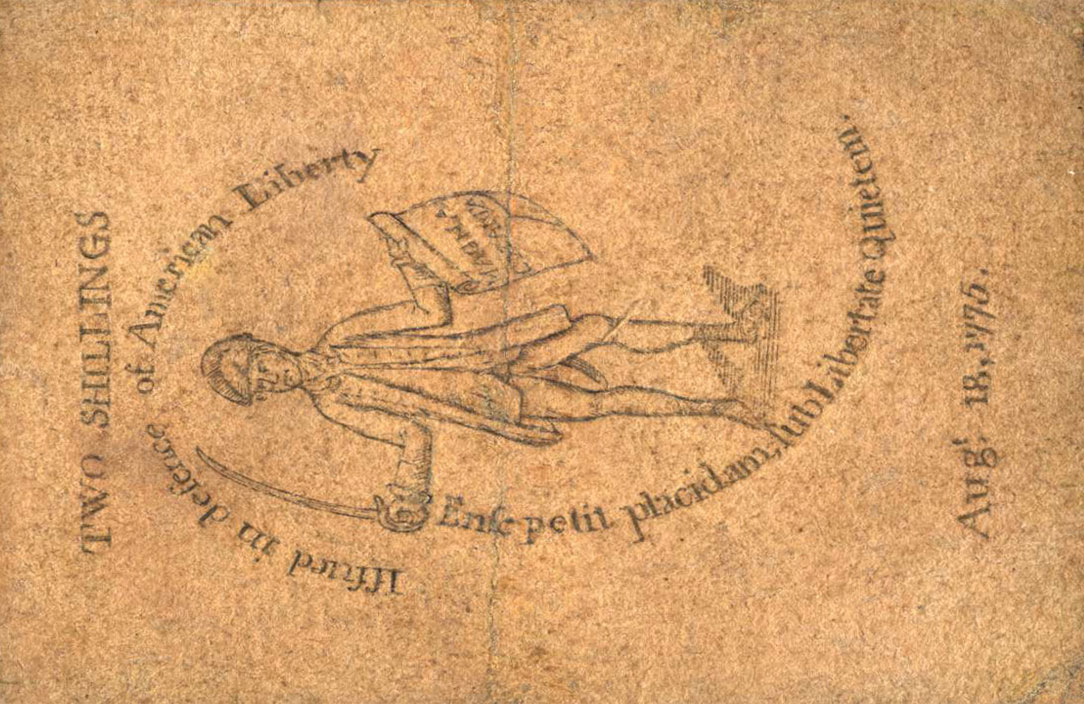 TWO SHILLINGS
Iſſued in defence of American Liberty
Enſe petit placidam, ſub Libertate Quietem.
Augᵗ 18, 1775.